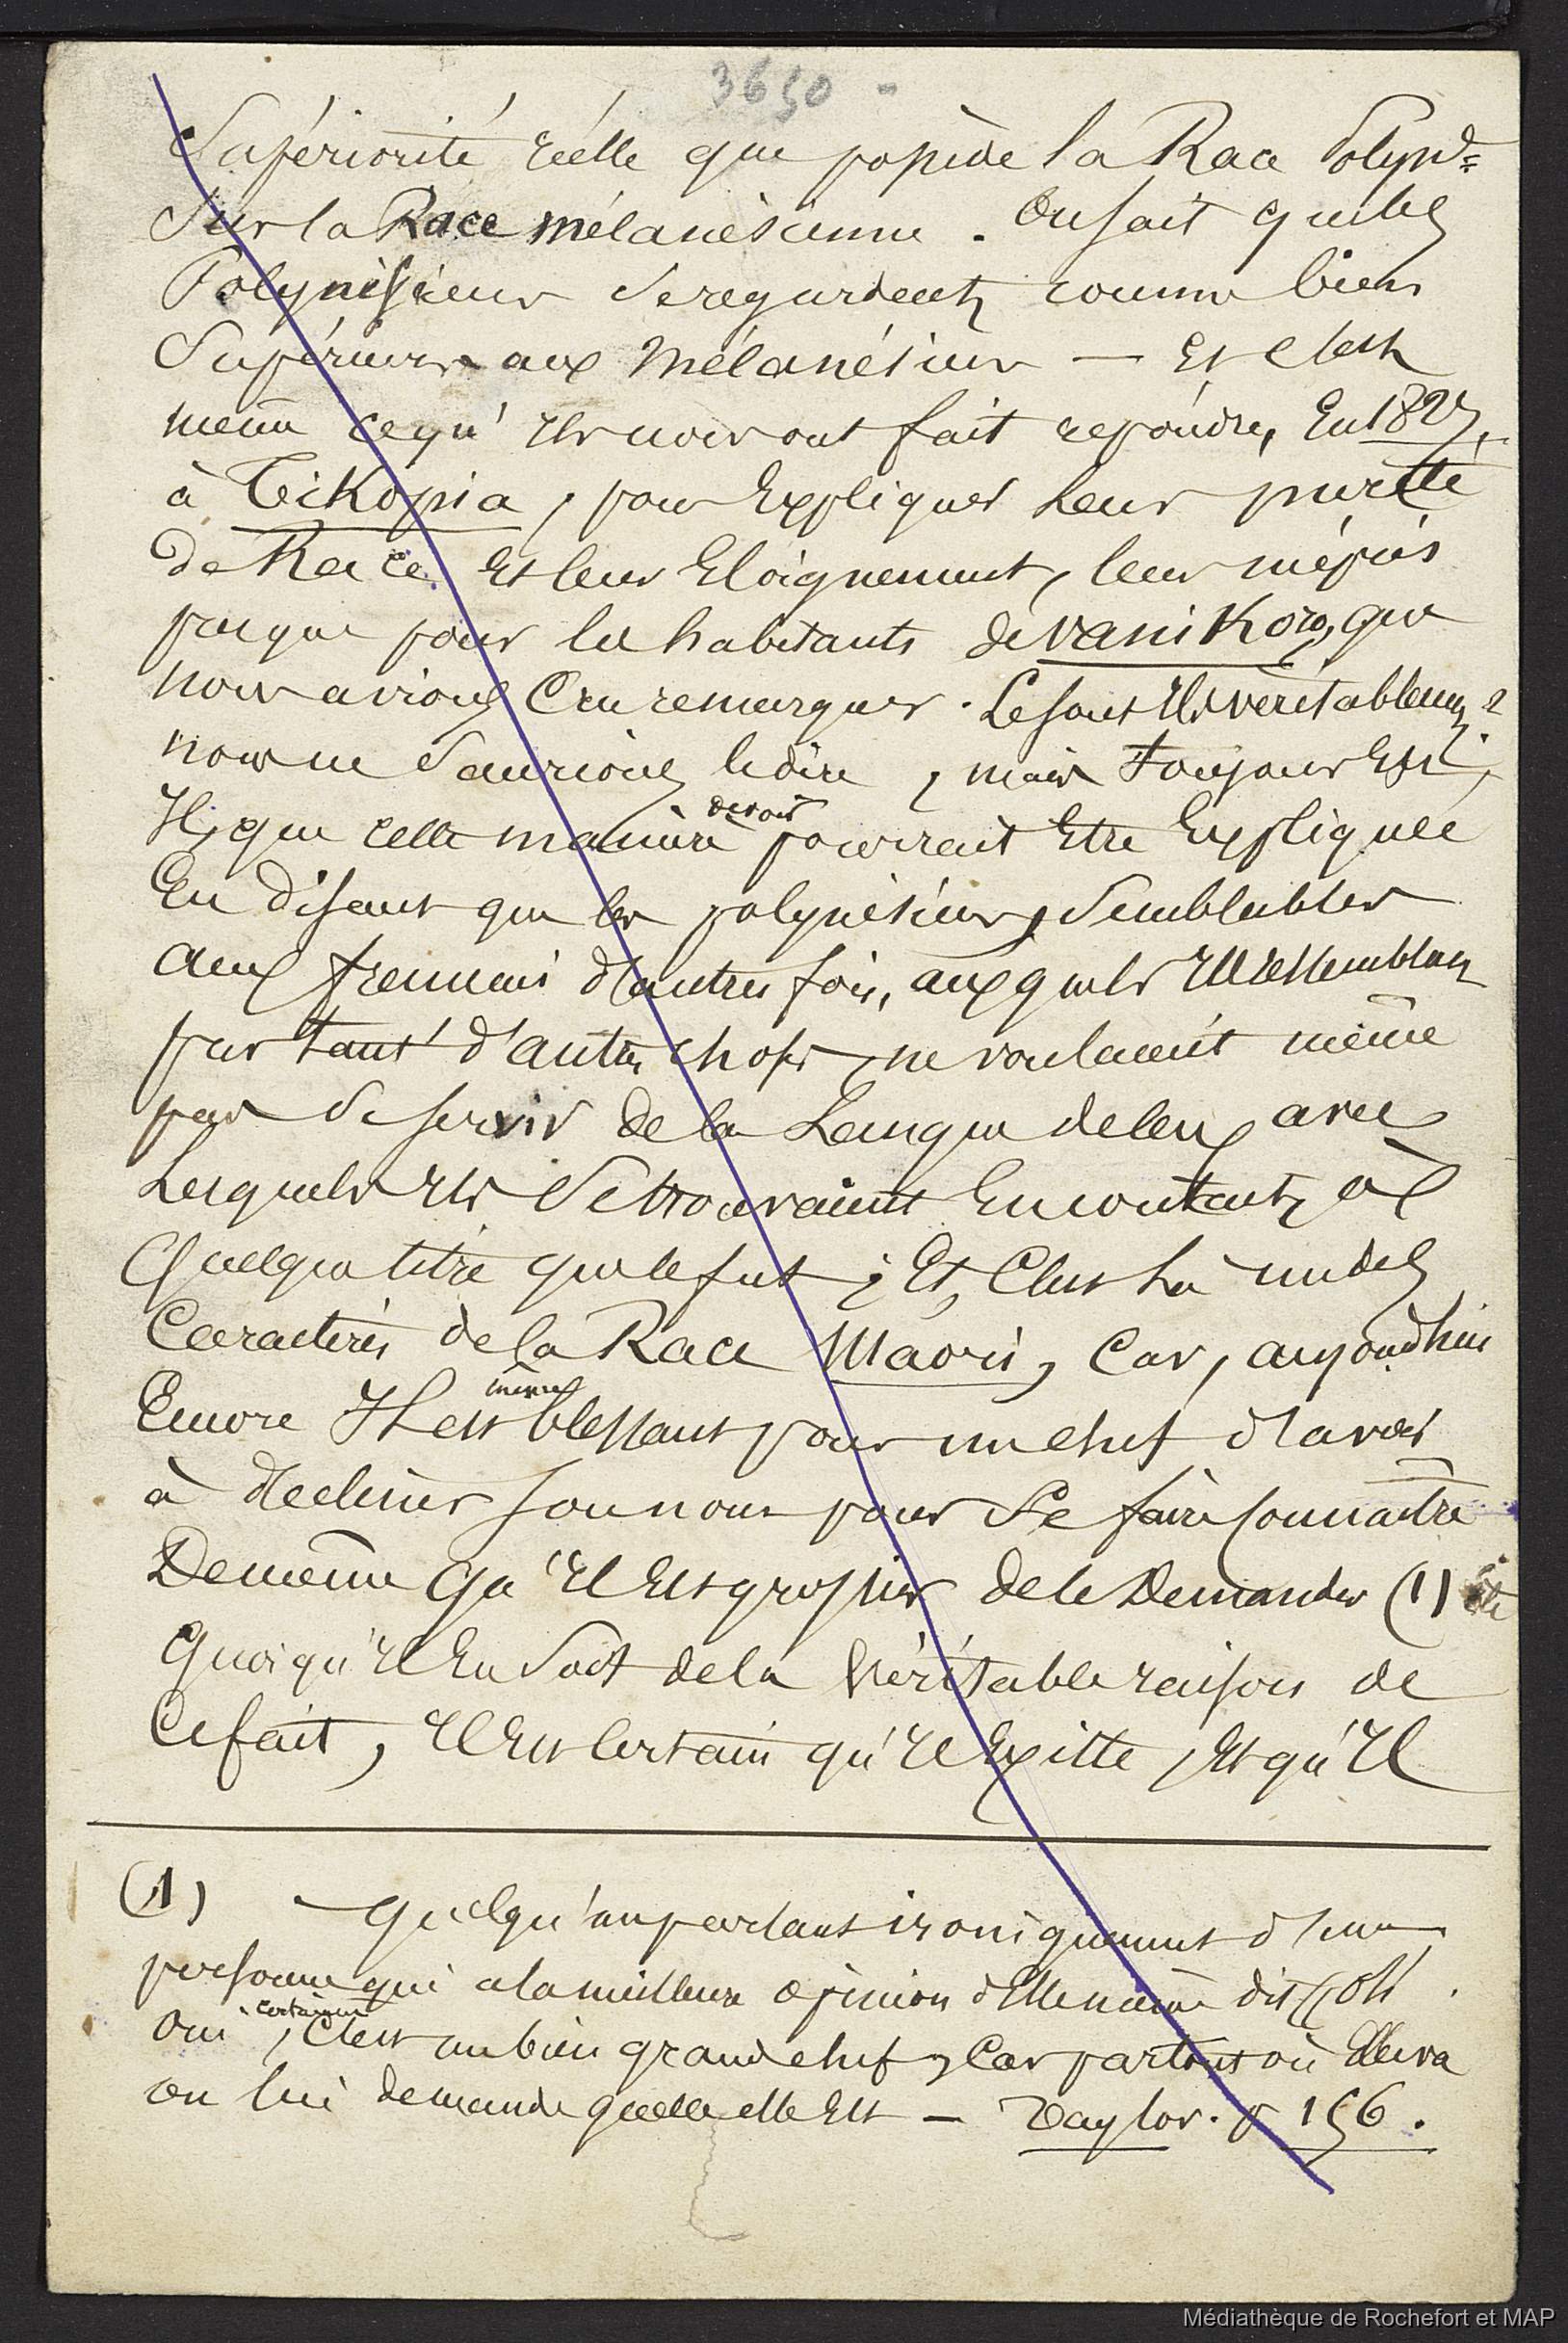 3650 -
Supériorité réelle que possède la Race Polynd=
Sur la Race mélanésienne. On sait que les
Polynésiens se regardent comme bien
Supérieurs aux Mélanésiens — Et c'est
même ce qu'ils nous ont fait repondre, En 1827,
à Tikopia, pour Expliquer leur pureté
de Race Et leur Eloignement, leur mépris
presque pour les habitants de Vanikoro, que
nous avions Cru remarquer. Le sont Ils véritablemt?
nous ne Saurions le dire, mais toujours Est
Il, que cette manière devoir pourrait Etre Expliquée
En disant que les polynésiens, Semblables
aux français d'autres fois, auxquels Ils ressemblent
par tant d'autres choses, ne voulaient même
pas Se servir de la Langue de ceux avec
Lesquels Ils Se trouvaient En contact, à
Quelque titre que ce fut; Et, C'est La un des
Caractères de la Race Maori, Car, aujourd'hui
Encore Il est même blessant pour un chef d'avoir
à décliner son nom pour Se faire connaître
De même qu'Il Est grossier de le Demander (1)
Quoiqu'Il En Soit de la Véritable raison de
Ce fait, Il Est Certain qu'Il Existe, Et qu'Il
(1) — Quelqu'un parlant ironiquement d'une
personne qui a la meilleure opinion d'Elle même dit « Oh
Oui, certainemt C'est un bien grand chef, Car partout où Elle va
on lui demande qu'elle elle Est — Taylor. p 156.
Médiathèque de Rochefort et MAP